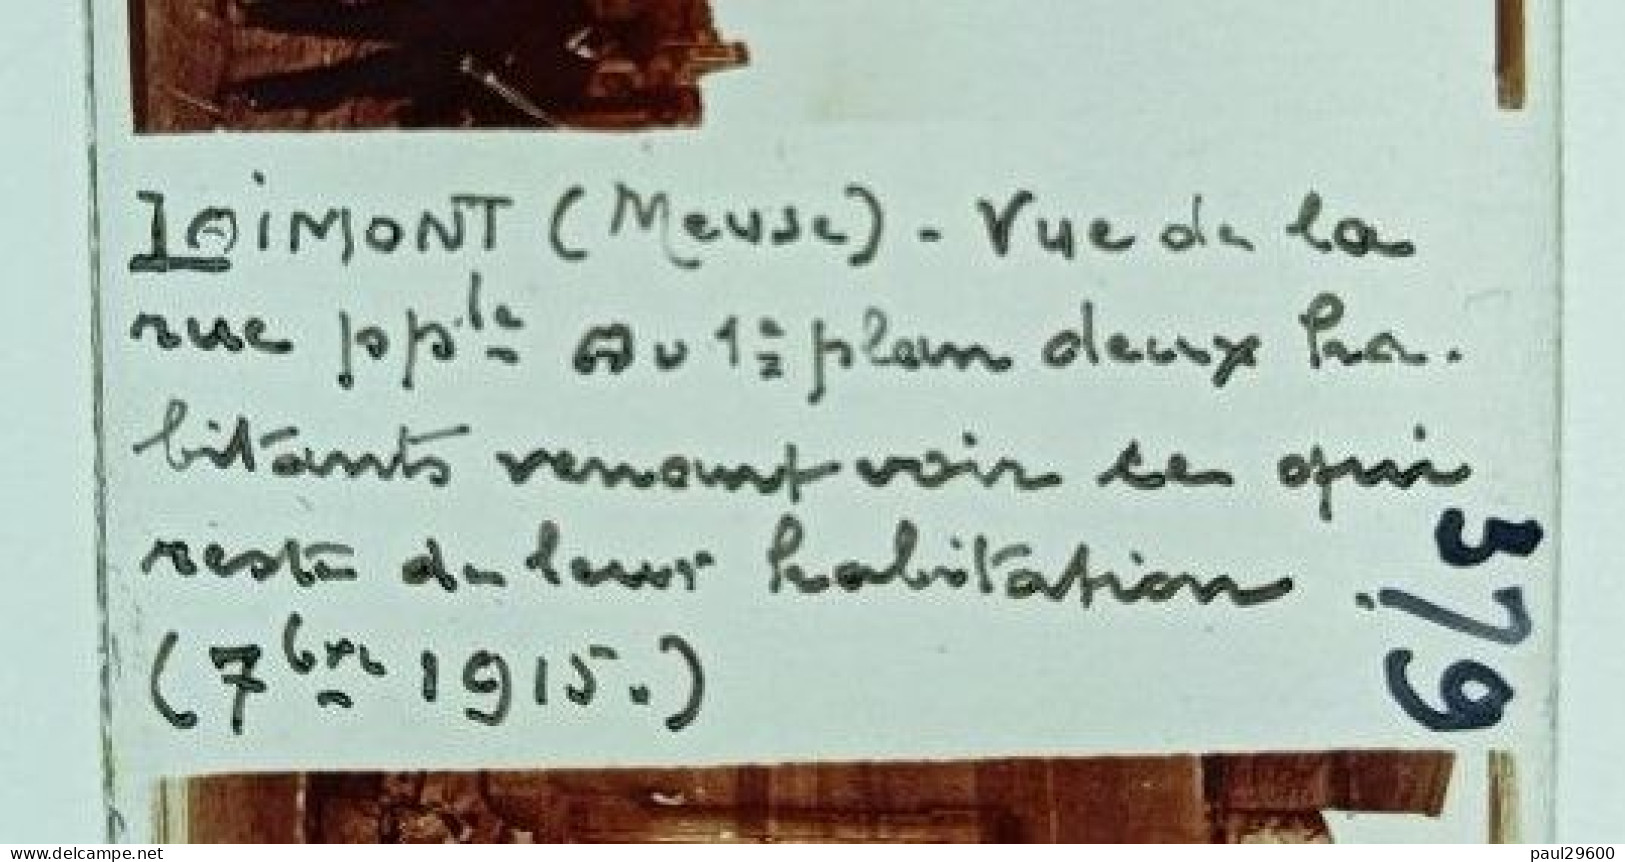 IOIMONT (Meuse) - Vue de la
rue pple Au 1er plan deux ha-
bitants venant voir ce qui
reste de leur habitation
(7bre 1915.)
379
paul29600